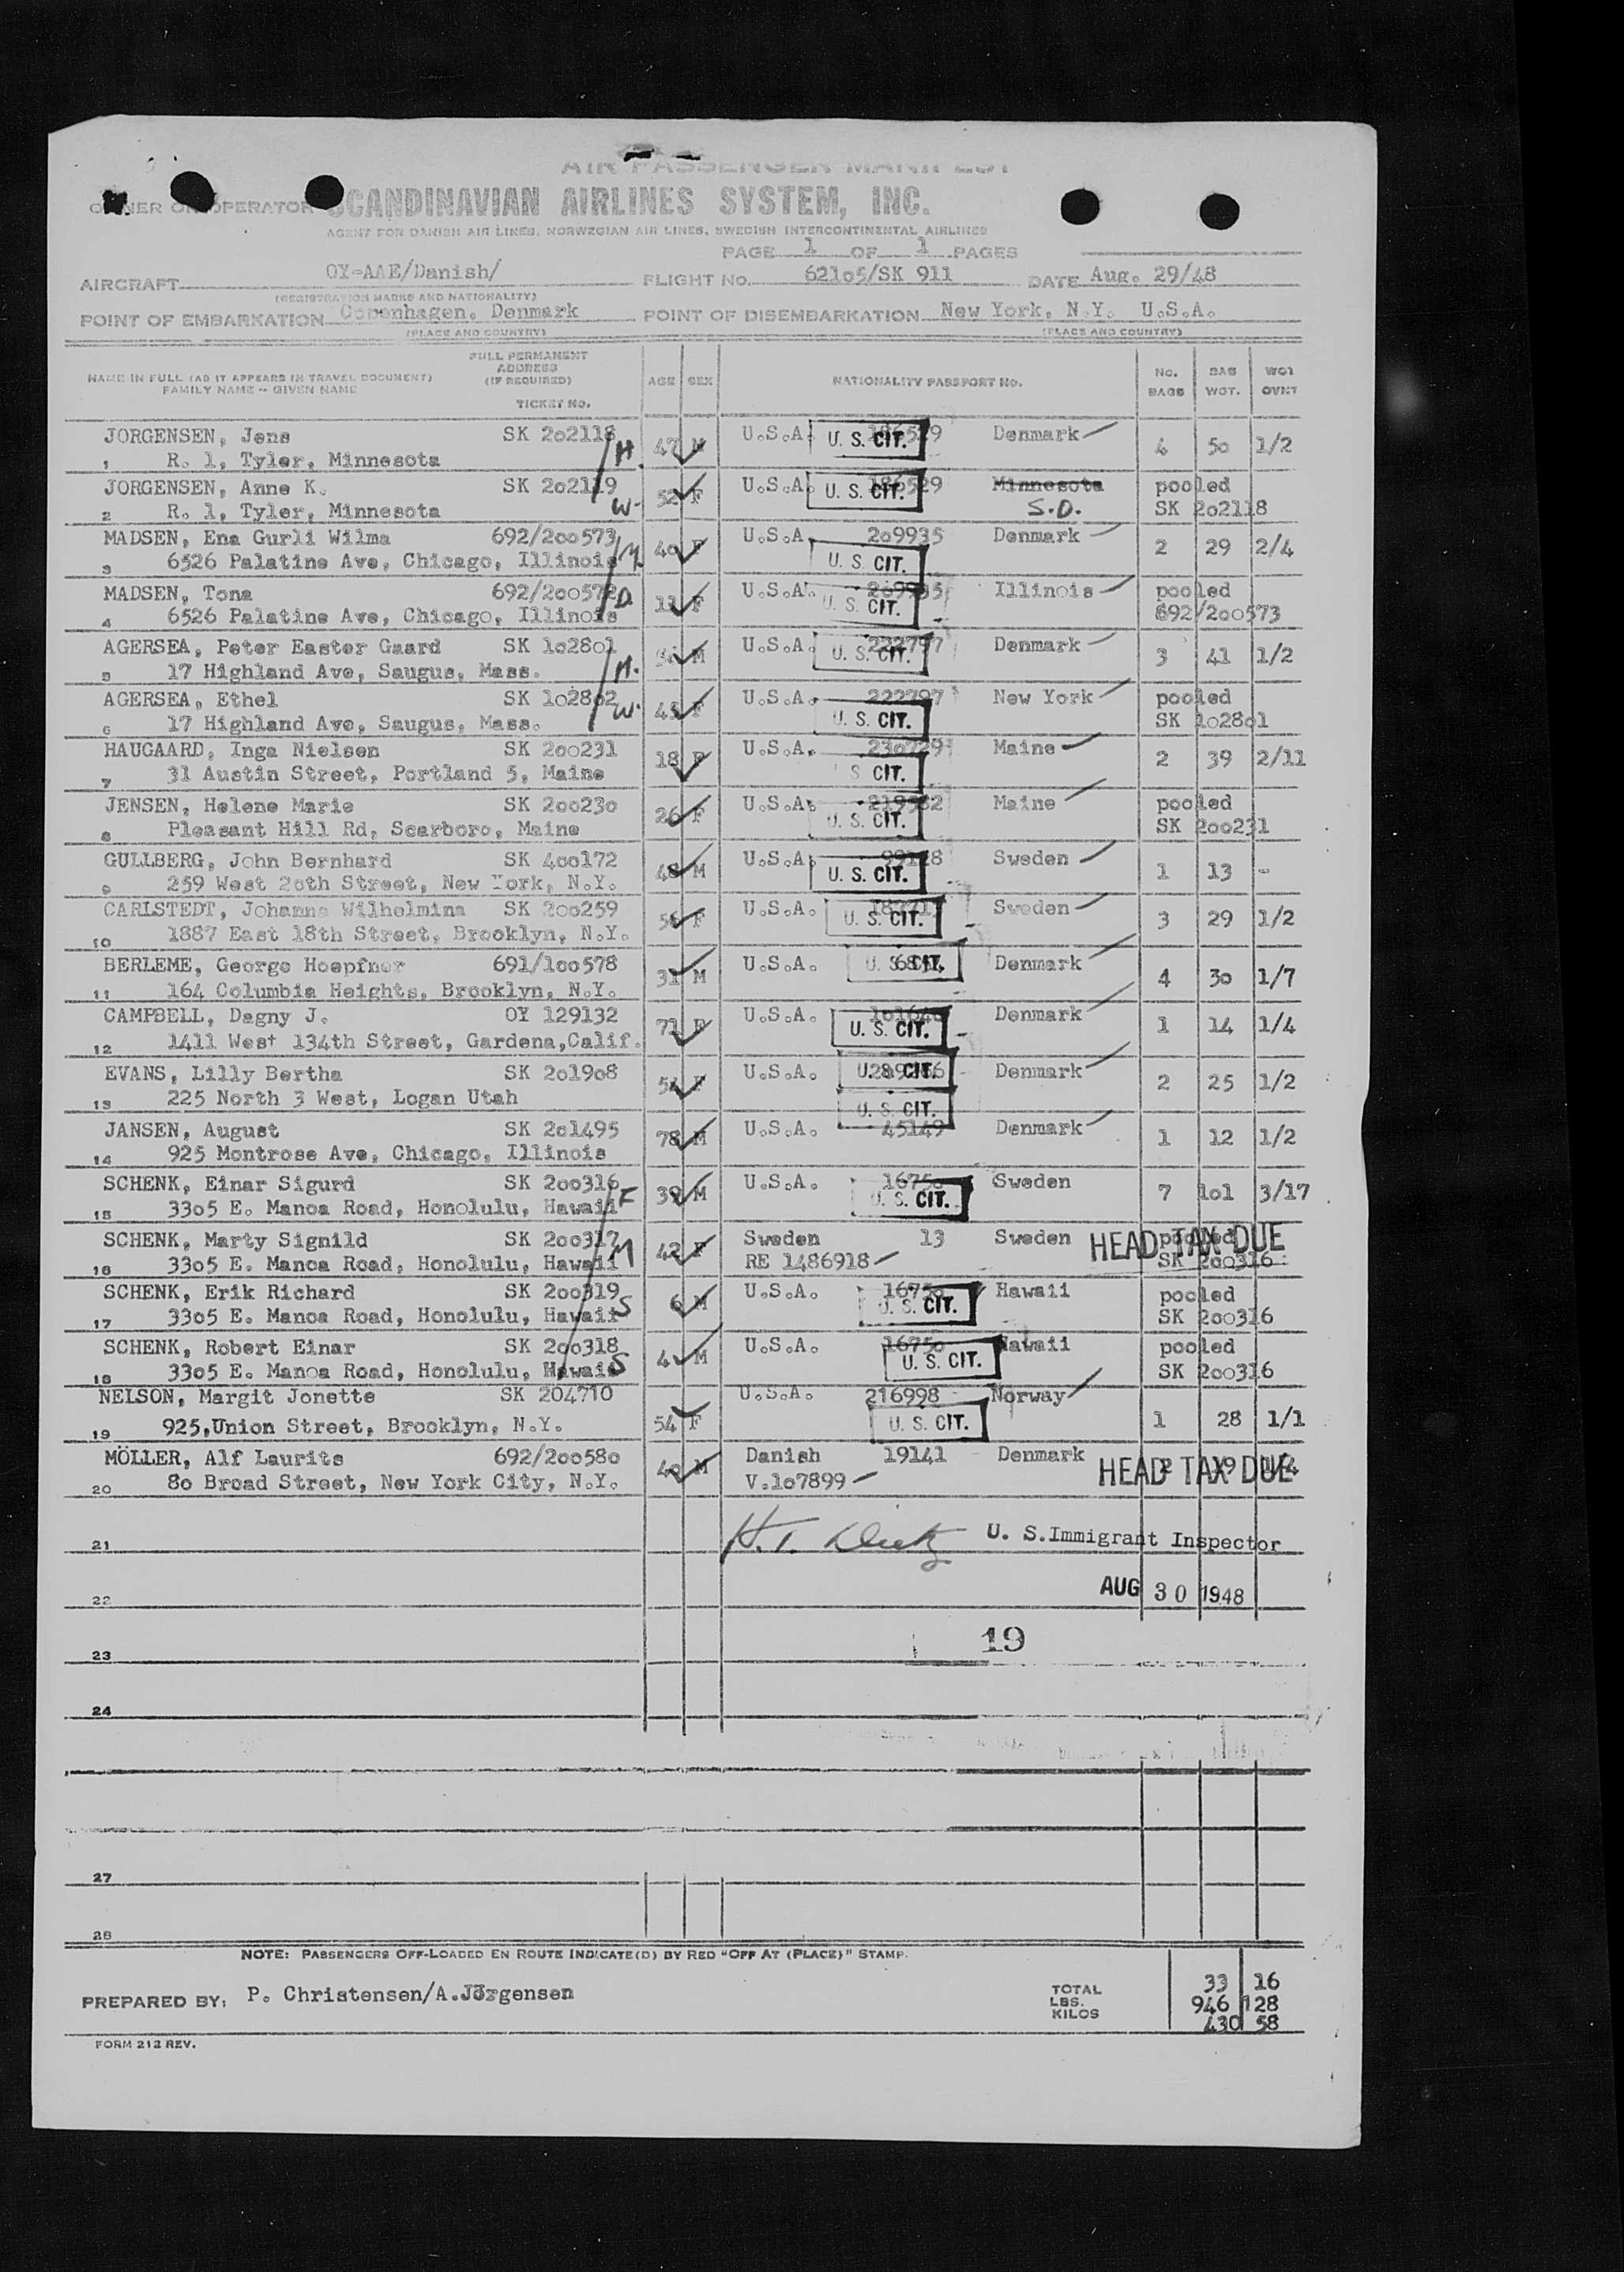 AIR PASSENGER MANIFEST
OWNER OR OPERATOR SCANDINAVIAN AIRLINES SYSTEM, INC.
AGENT FOR DANISH AIR LINES, NORWEGIAN AIR LINES, SWEDISH INTERCONTINENTAL AIRLINES
PAGE 1 OF 1 PAGES
AIRCRAFT OY-AAE/Danish/ FLIGHT NO. 62105/SK 911 DATE Aug. 29/48
(REGISTRATION MARKS AND NATIONALITY)
POINT OF EMBARKATION Copenhagen, Denmark POINT OF DISEMBARKATION New York, N.Y. U.S.A.
(PLACE AND COUNTRY) (PLACE AND COUNTRY)
NAME IN FULL (AS IT APPEARS IN TRAVEL DOCUMENT) FAMILY NAME -- GIVEN NAME FULL PERMANENT ADDRESS (IF REQUIRED) TICKET NO. AGE SEX NATIONALITY PASSPORT NO. NO. BAGS BAG WGT. WGT OVNT
JORGENSEN, Jens SK 202118 H. 47 M U.S.A. U. S. CIT. Denmark 4 50 1/2
1 R. 1, Tyler, Minnesota
JORGENSEN, Anne K. SK 202119 W. 52 F U.S.A. 186529 U. S. CIT. Minnesota pooled
2 R. 1, Tyler, Minnesota S.D. SK 202118
MADSEN, Ena Gurli Wilma 692/200573 M. 40 F U.S.A. 209935 Denmark 2 29 2/4
3 6526 Palatine Ave, Chicago, Illinois U. S. CIT.
MADSEN, Tona 692/200572 D. 11 F U.S.A. 209935 Illinois pooled
4 6526 Palatine Ave, Chicago, Illinois U. S. CIT. 692/200573
AGERSEA, Peter Easter Gaard SK 102801 H. M U.S.A. 222797 Denmark 3 41 1/2
5 17 Highland Ave, Saugus, Mass. U. S. CIT.
AGERSEA, Ethel SK 102802 W. 45 F U.S.A. 222797 New York pooled
6 17 Highland Ave, Saugus, Mass. U. S. CIT. SK 102801
HAUGAARD, Inga Nielsen SK 200231 18 F U.S.A. 230729 Maine 2 39 2/11
7 31 Austin Street, Portland 5, Maine S CIT.
JENSEN, Helene Marie SK 200230 26 F U.S.A. Maine pooled
8 Pleasant Hill Rd, Scarboro, Maine U. S. CIT. SK 200231
GULLBERG, John Bernhard SK 400172 48 M U.S.A. Sweden 1 13 -
9 259 West 20th Street, New York, N.Y. U. S. CIT.
CARLSTEDT, Johanna Wilhelmina SK 200259 F U.S.A. Sweden 3 29 1/2
10 1887 East 18th Street, Brooklyn, N.Y. U. S. CIT.
BERLEME, George Hoepfner 691/100578 31 M U.S.A. U. S. CIT. Denmark 4 30 1/7
11 164 Columbia Heights, Brooklyn, N.Y.
CAMPBELL, Dagny J. OY 129132 71 F U.S.A. Denmark 1 14 1/4
12 1411 West 134th Street, Gardena,Calif. U. S. CIT.
EVANS, Lilly Bertha SK 201908 F U.S.A. U. S. CIT. Denmark 2 25 1/2
13 225 North 3 West, Logan Utah U. S. CIT.
JANSEN, August SK 201495 78 M U.S.A. 45149 Denmark 1 12 1/2
14 925 Montrose Ave, Chicago, Illinois
SCHENK, Einar Sigurd SK 200316 F 39 M U.S.A. 16750 Sweden 7 101 3/17
15 3305 E. Manoa Road, Honolulu, Hawaii U. S. CIT.
SCHENK, Marty Signild SK 200317 M 42 F Sweden 13 Sweden pooled HEAD TAX DUE
16 3305 E. Manoa Road, Honolulu, Hawaii RE 1486918 SK 200316
SCHENK, Erik Richard SK 200319 S 6 M U.S.A. 16750 Hawaii pooled
17 3305 E. Manoa Road, Honolulu, Hawaii U. S. CIT. SK 200316
SCHENK, Robert Einar SK 200318 S 4 M U.S.A. 16750 Hawaii pooled
18 3305 E. Manoa Road, Honolulu, Hawaii U. S. CIT. SK 200316
NELSON, Margit Jonette SK 204710 54 F U.S.A. 216998 Norway 1 28 1/1
19 925,Union Street, Brooklyn, N.Y. U. S. CIT.
MÖLLER, Alf Laurits 692/200580 40 M Danish 19141 Denmark HEAD TAX DUE
20 80 Broad Street, New York City, N.Y. V.107899
21 U. S.Immigrant Inspector
22 AUG 30 1948
19
23
24
27
28
NOTE: PASSENGERS OFF-LOADED EN ROUTE INDICATE(D) BY RED "OFF AT (PLACE)" STAMP.
PREPARED BY: P. Christensen/A.Jörgensen
TOTAL 33 16
LBS. 946 128
KILOS 430 58
FORM 212 REV.